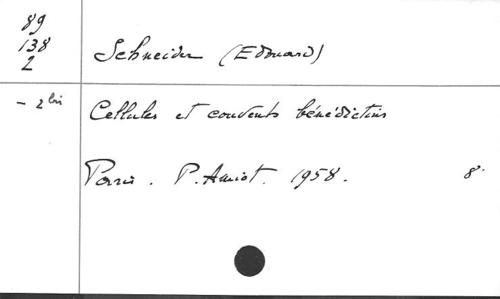 89
138
2
Schneider (Edouard)
- 2 bis
Cellules et couvents bénédictins
Paris. P. Amiot. 1958. 8°